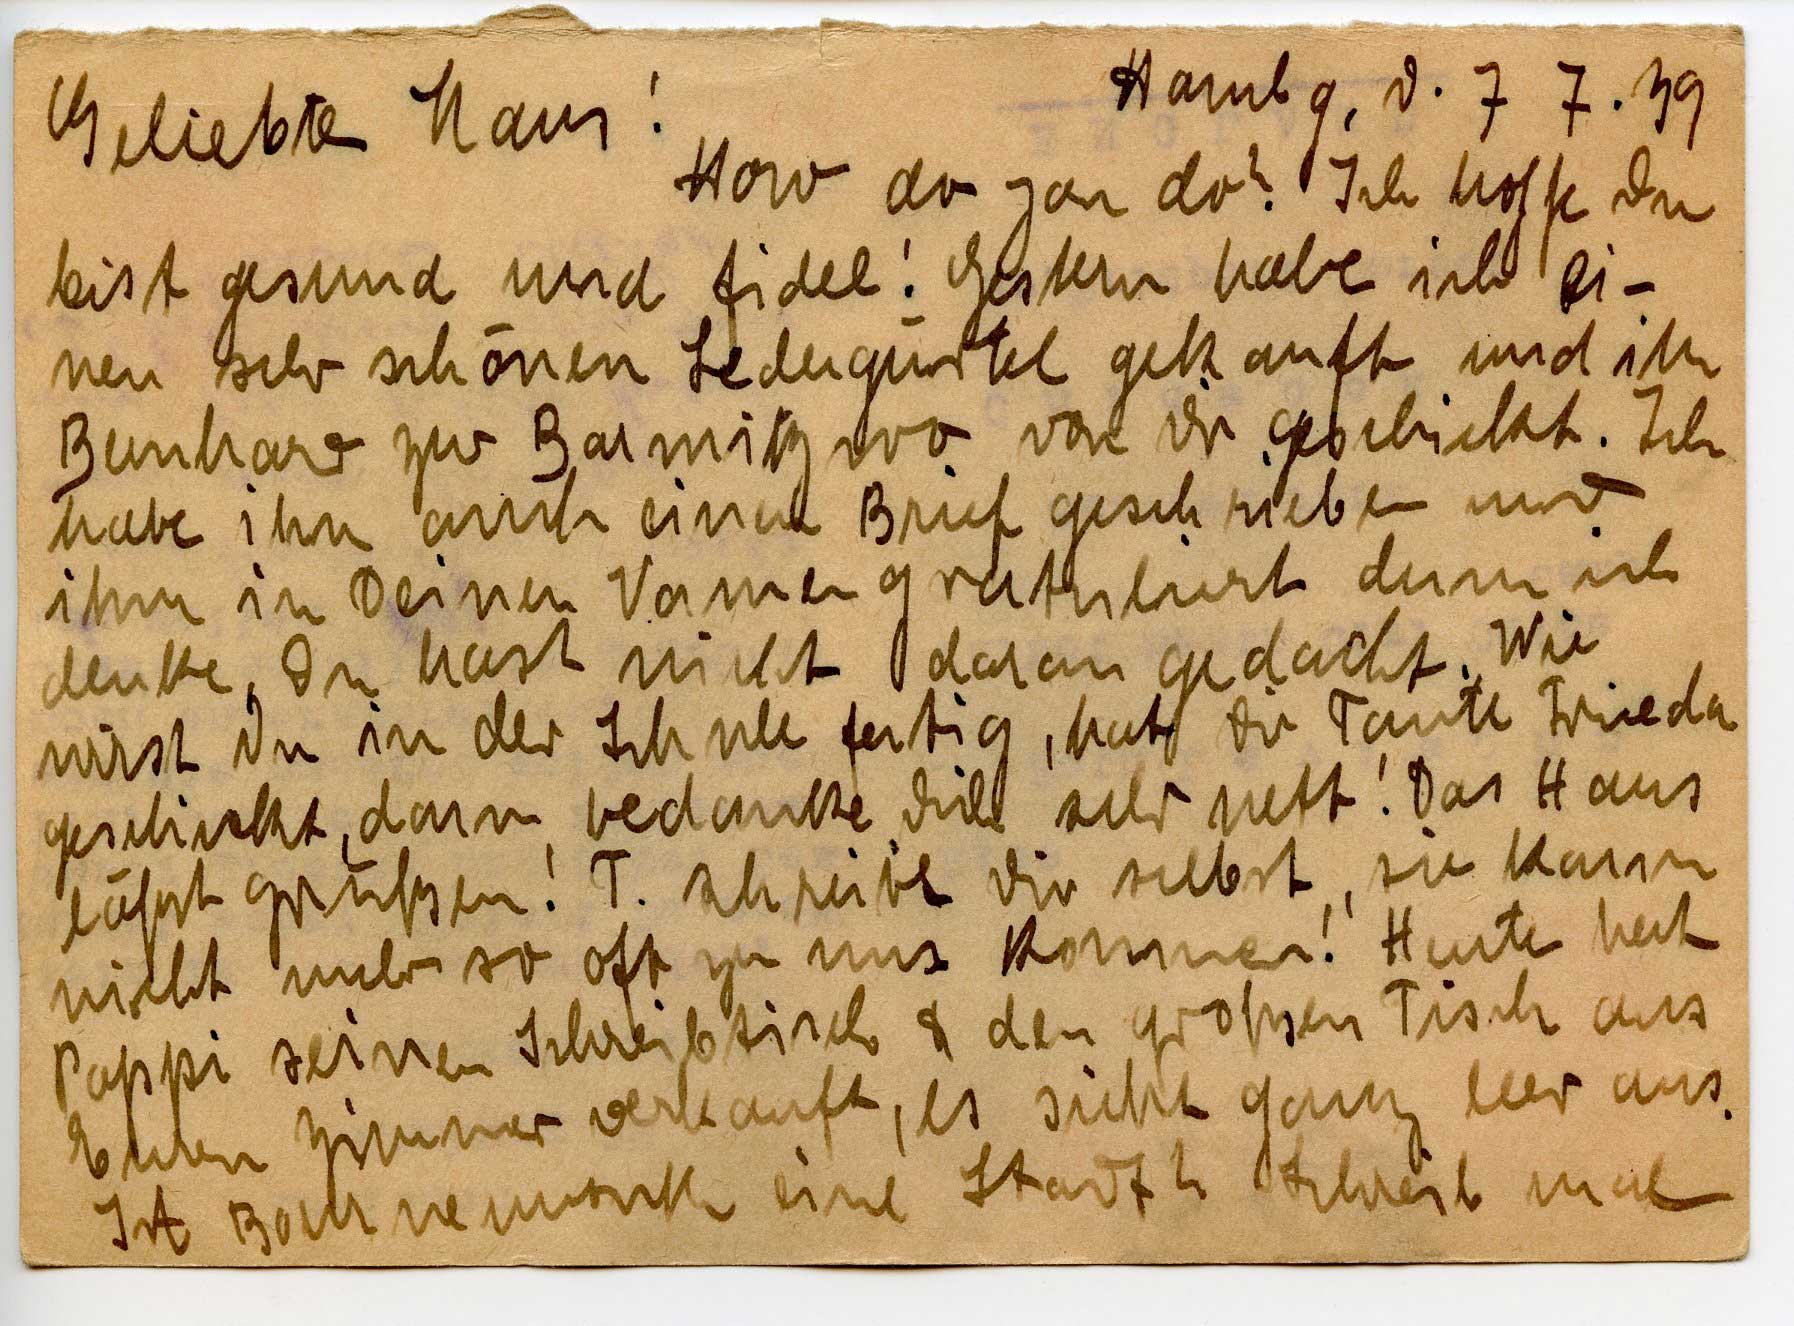 Geliebte Maus!
Hambg, d. 7 7. 39
How do you do? Ich hoffe Du
bist gesund und fidel! Gestern habe ich ei-
nen sehr schönen Ledergürtel gekauft und ihn
Bernhard zur Barmitzwo von Dir geschickt. Ich
habe ihm auch einen Brief geschrieben und
ihm in Deinen Namen gratuliert denn ich
denke, Du hast nicht daran gedacht. Wie
wirst Du in der Schule fertig, hat Dir Tante Frieda
geschickt, dann bedanke Dich sehr nett! Das Haus
läßst grüßen! T. schreibt Dir selbst, sie kann
nicht mehr so oft zu uns kommen! Heute hat
Pappi seinen Schreibtisch & den großen Tisch aus
Euren Zimmer verkauft, es sieht ganz leer aus.
Ist Bournemouth eine Stadt? Schreib mal